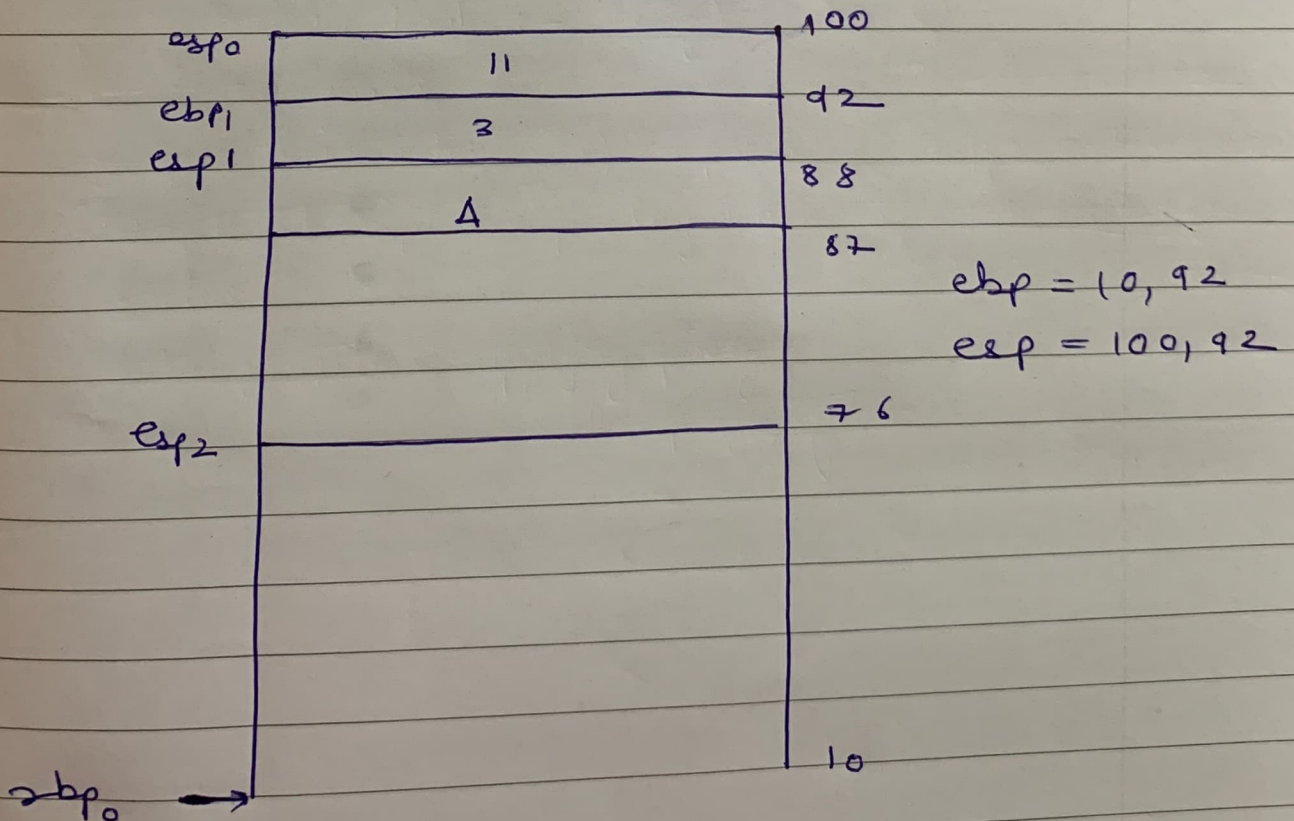 esp0 100
11
ebp1 92
3
esp1 88
A
87
ebp = 10, 92
esp = 100, 92
76
esp2
10
ebp0